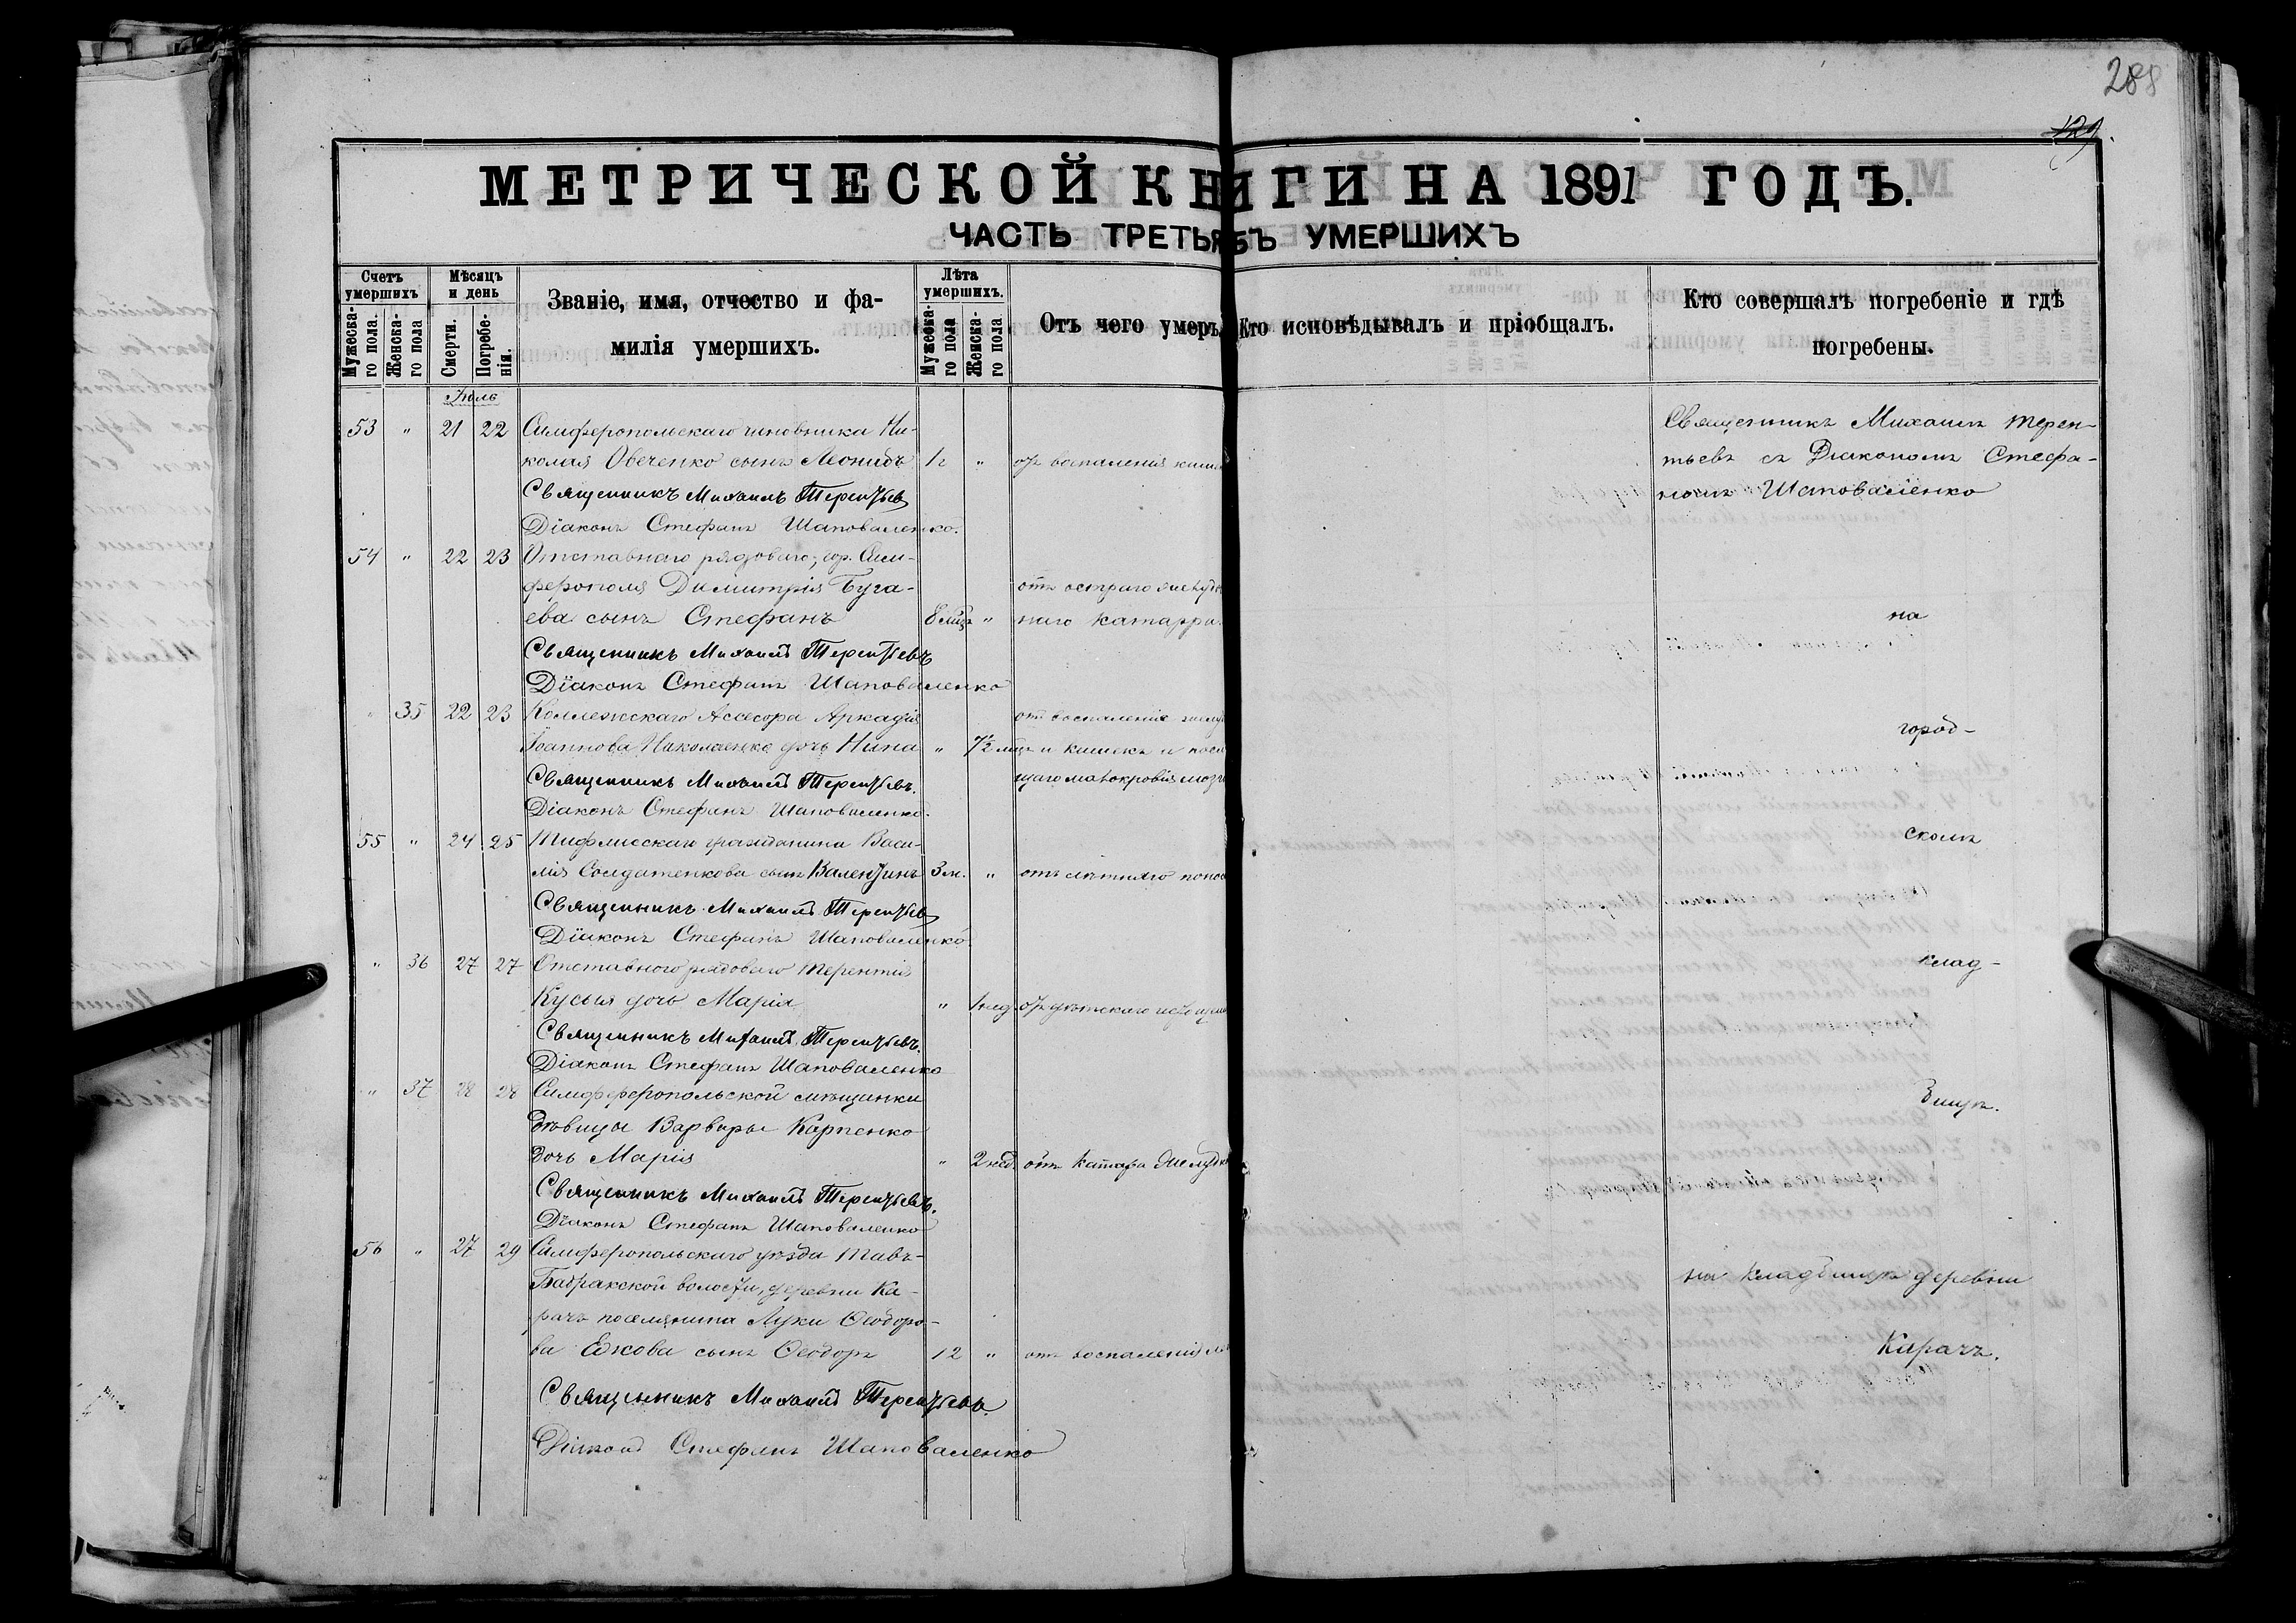 288
129.
МЕТРИЧЕСКОЙ КНИГИ НА 1891 ГОДЪ.
ЧАСТЬ ТРЕТЬЯ УМЕРШИХЪ
Счетъ умершихъ
Мужеска-го пола.
Женска-го пола
Мѣсяцъ и день
Смерти.
Погребе-нія.
Званіе, имя, отчество и фа-
милія умершихъ.
Лѣта умершихъ.
Мужеска-го пола
Женска-го пола
Отъ чего умеръ.
Кто исповѣдывалъ и пріобщалъ.
Кто совершалъ погребеніе и гдѣ
погребены.
Іюль
53 " 21 22 Симферопольскаго чиновника Ни-
колая Овченко сынъ Леонидъ 1 г " отъ воспаленія
Священникъ Михаилъ Терентьевъ
Діаконъ Стефанъ Шаповаленко.
54 " 22 23 Отставнаго рядоваго, гор. Сим-
ферополя Димитрія Буга- отъ остраго
ева сынъ Стефанъ 8 мцъ " наго катарра
Священникъ Михаилъ Терентьевъ
Діаконъ Стефанъ Шаповаленко
" 35 22 23 Коллежскаго Ассесора Аркадія от воспаленіе
Іоаннова Николаенко дочь Нина " 7½ мцъ и кишекъ и
Священникъ Михаилъ Терентьевъ. щаго малокровія
Діаконъ Стефанъ Шаповаленко.
55 " 24 25 Тифлисскаго гражданина Васи-
лія Солдатенкова сынъ Валентинъ 3 м. " отъ лѣтняго
Священникъ Михаилъ Терентьевъ
Діаконъ Стефанъ Шаповаленко
" 36 27 27 Отставного рядоваго Терентія
дочь Марія " 1 нед отъ дѣтскаго
Священникъ Михаилъ Терентьевъ.
Діаконъ Стефанъ Шаповаленко
" 37 28 28 Симфферопольской мѣщанки
дѣвицы Варвары Карпенко
дочь Марія " 2 нед. отъ катара
Священникъ Михаилъ Терентьевъ.
Діаконъ Стефанъ Шаповаленко
56 " 27 29 Симферопольскаго уѣзда Тавъ-
Бадракской волости, деревни Ка-
рачъ поселянина Луки Ѳеодоро-
ва Ежова сынъ Ѳеодоръ 12 " отъ воспаленія
Священникъ Михаилъ Терентьевъ.
Діаконъ Стефанъ Шаповаленко
Священникъ Михаилъ Терен-
тьевъ съ Діакономъ Стефа-
номъ Шаповаленко
на
город-
скомъ
клад-
бищѣ.
на кладбищѣ деревни
Карачъ.